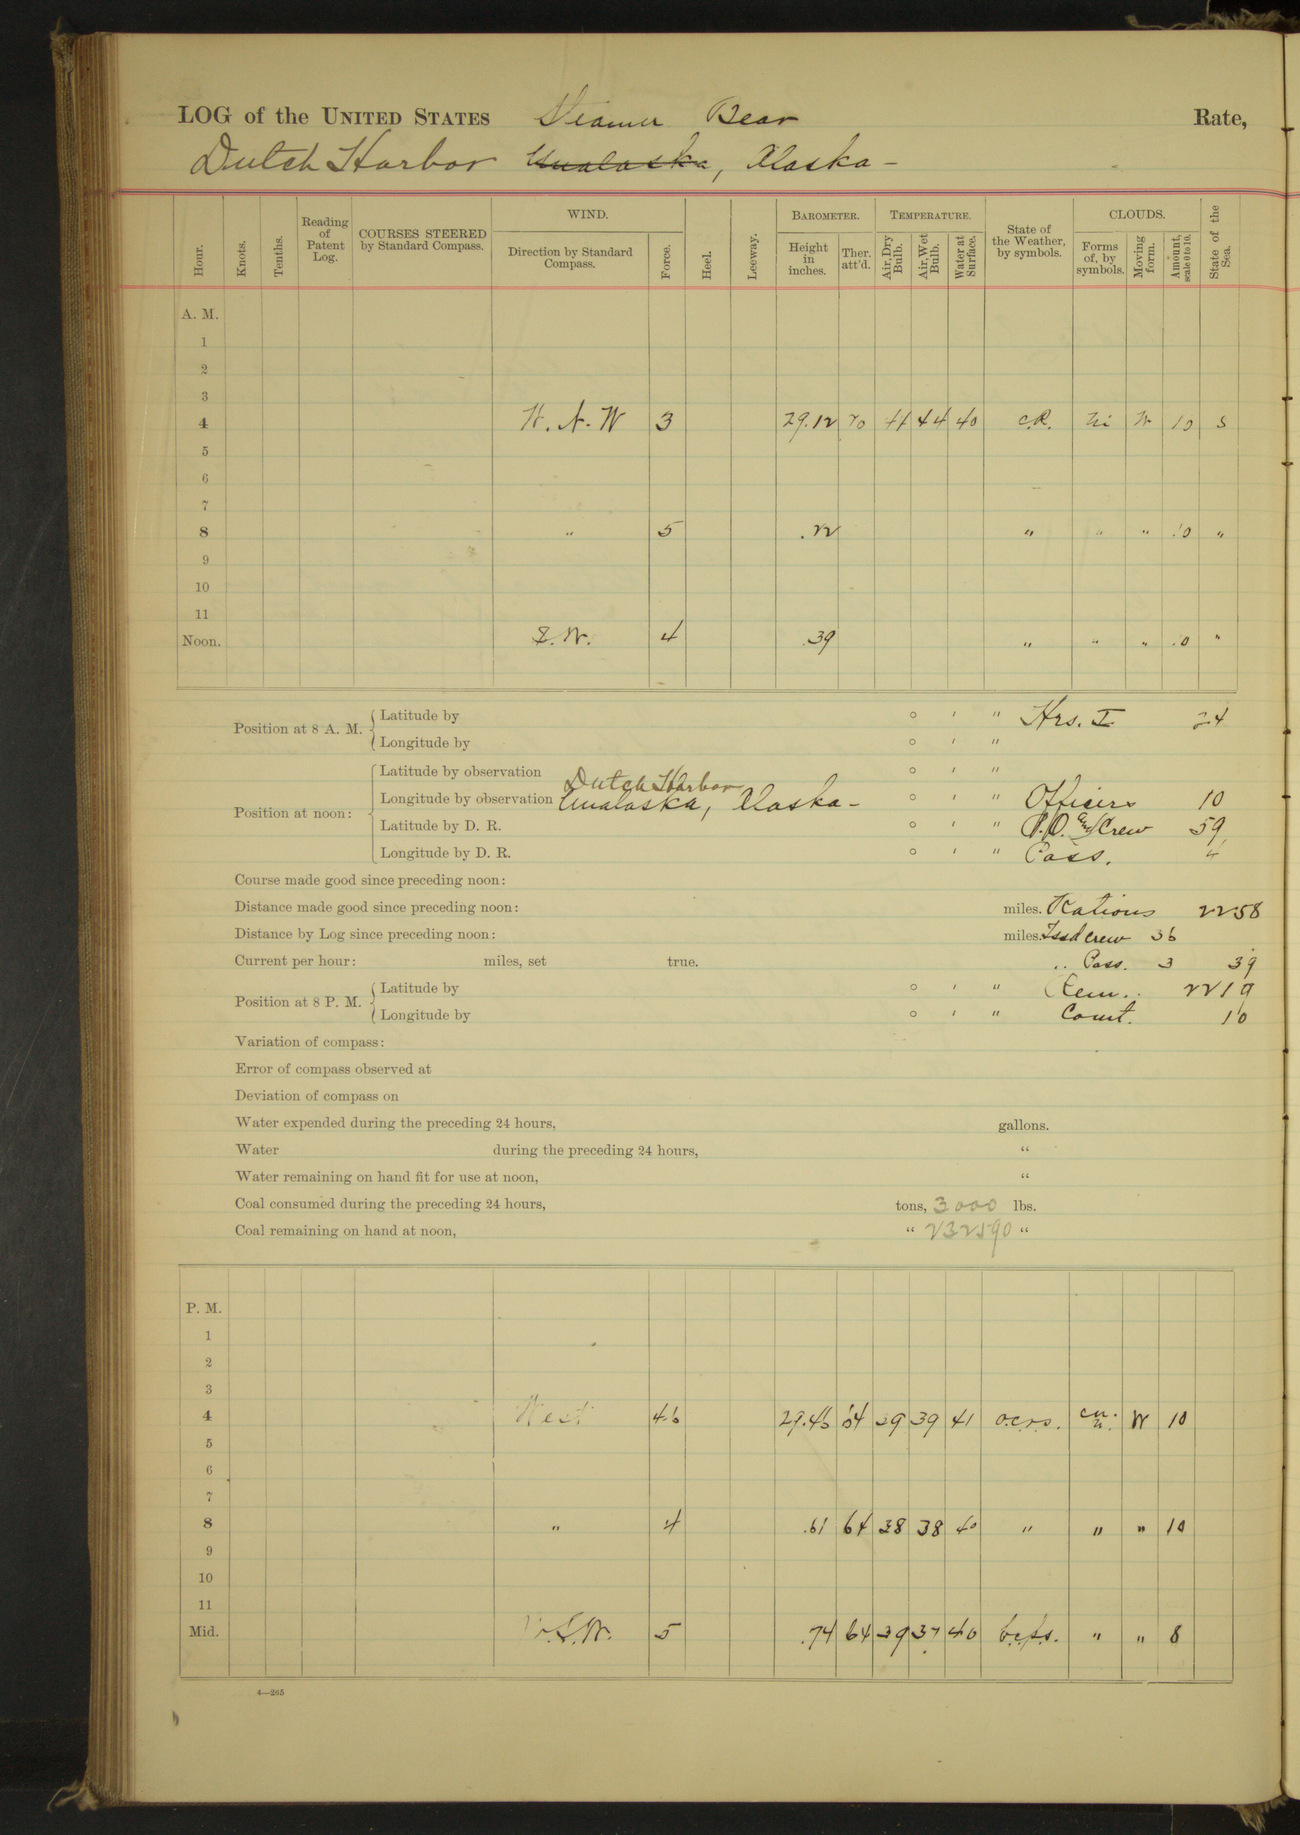 LOG of the UNITED STATES Steamer Bear Rate,
Dutch Harbor Unalaska, Alaska –
Hour. Knots. Tenths. Reading of Patent Log. COURSES STEERED by Standard Compass. WIND. Direction by Standard Compass. Force. Heel. Leeway. BAROMETER. Height in inches. Ther. att'd. TEMPERATURE. Air, Dry Bulb. Air, Wet Bulb. Water at Surface. State of the Weather, by symbols. CLOUDS. Forms of, by symbols. Moving form. Amount, scale 0 to 10. State of the Sea.
A. M.
1
2
3
4 W. N. W 3 29.12 70 44 44 40 c.R. Ni W 10 S
5
6
7
8 " 5 .22 " " " 10 "
9
10
11
Noon. S.W. 4 .39 " " " 10 "
Position at 8 A. M. Latitude by ° ' " Hrs. I 24
Longitude by ° ' "
Position at noon: Latitude by observation ° ' "
Dutch Harbor
Longitude by observation Unalaska, Alaska – ° ' " Officers 10
Latitude by D. R. ° ' " P.O. and Crew 59
Longitude by D. R. ° ' " Pass. 4
Course made good since preceding noon:
Distance made good since preceding noon: miles. Rations 2258
Distance by Log since preceding noon: miles. Issd Crew 36
Current per hour: miles, set true. " Pass. 3 39
Position at 8 P. M. Latitude by ° ' " Rem. 2219
Longitude by ° ' " Comt. 10
Variation of compass:
Error of compass observed at
Deviation of compass on
Water expended during the preceding 24 hours, gallons.
Water during the preceding 24 hours, "
Water remaining on hand fit for use at noon, "
Coal consumed during the preceding 24 hours, tons, 3000 lbs.
Coal remaining on hand at noon, " 232590 "
P. M.
1
2
3
4 West 4.6 29.46 64 39 39 41 o.c.r.s. cu. n. W 10
5
6
7
8 " 4 .61 64 38 38 40 " " " 10
9
10
11
Mid. W.S.W. 5 .74 64 39 37 40 b.c.s. " " 8
4—265